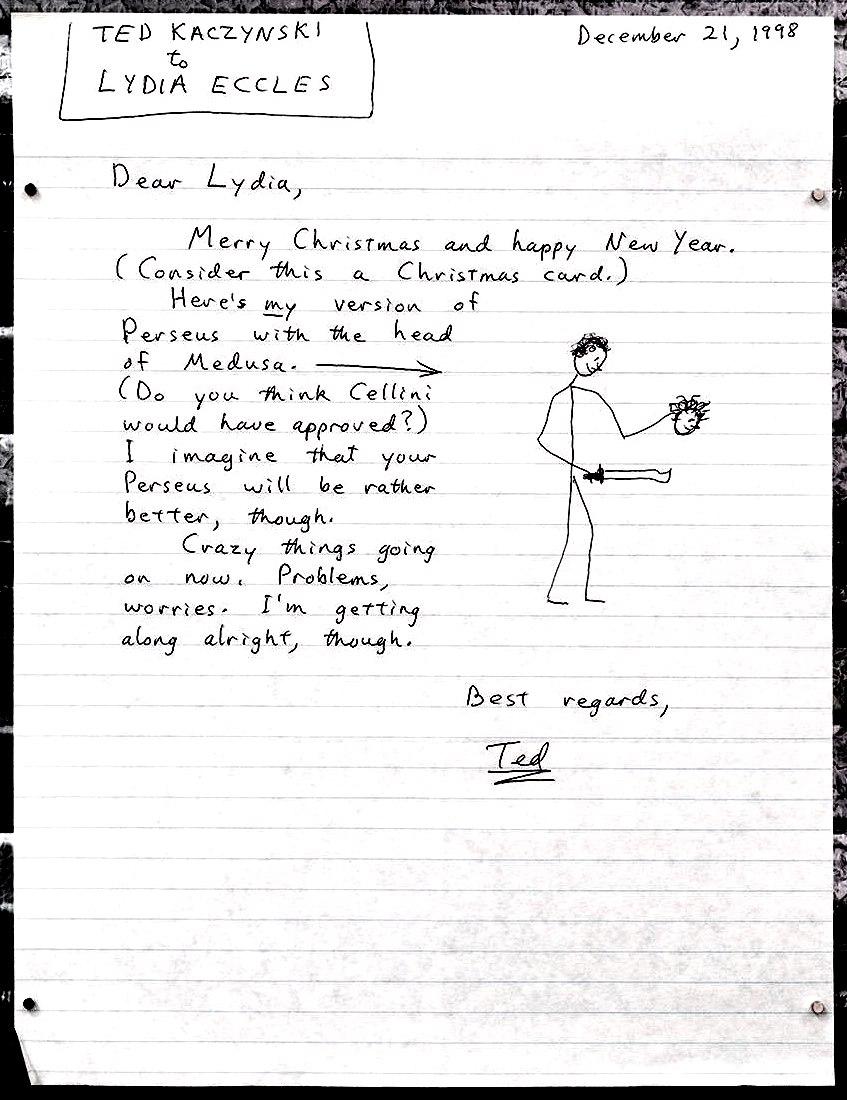 TED KACZYNSKI
to
LYDIA ECCLES
December 21, 1998
Dear Lydia,
Merry Christmas and happy New Year.
(Consider this a Christmas card.)
Here's my version of
Perseus with the head
of Medusa.
(Do you think Cellini
would have approved?)
I imagine that your
Perseus will be rather
better, though.
Crazy things going
on now. Problems,
worries. I'm getting
along alright, though.
Best regards,
Ted